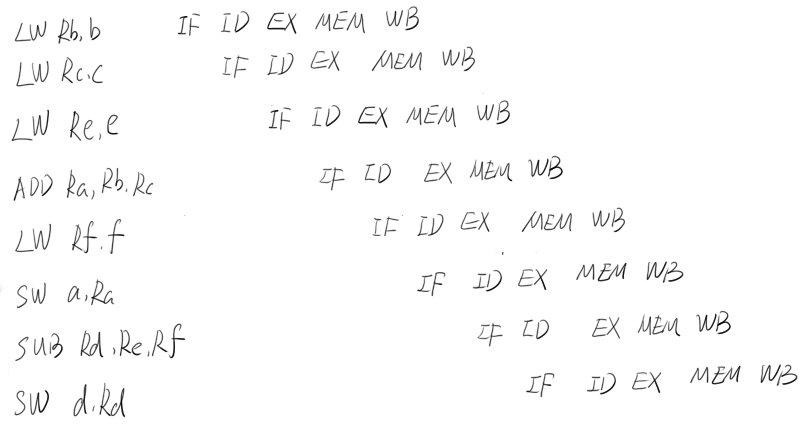 LW Rb,b IF ID EX MEM WB
LW Rc,c IF ID EX MEM WB
LW Re,e IF ID EX MEM WB
ADD Ra,Rb,Rc IF ID EX MEM WB
LW Rf,f IF ID EX MEM WB
SW a,Ra IF ID EX MEM WB
SUB Rd,Re,Rf IF ID EX MEM WB
SW d,Rd IF ID EX MEM WB